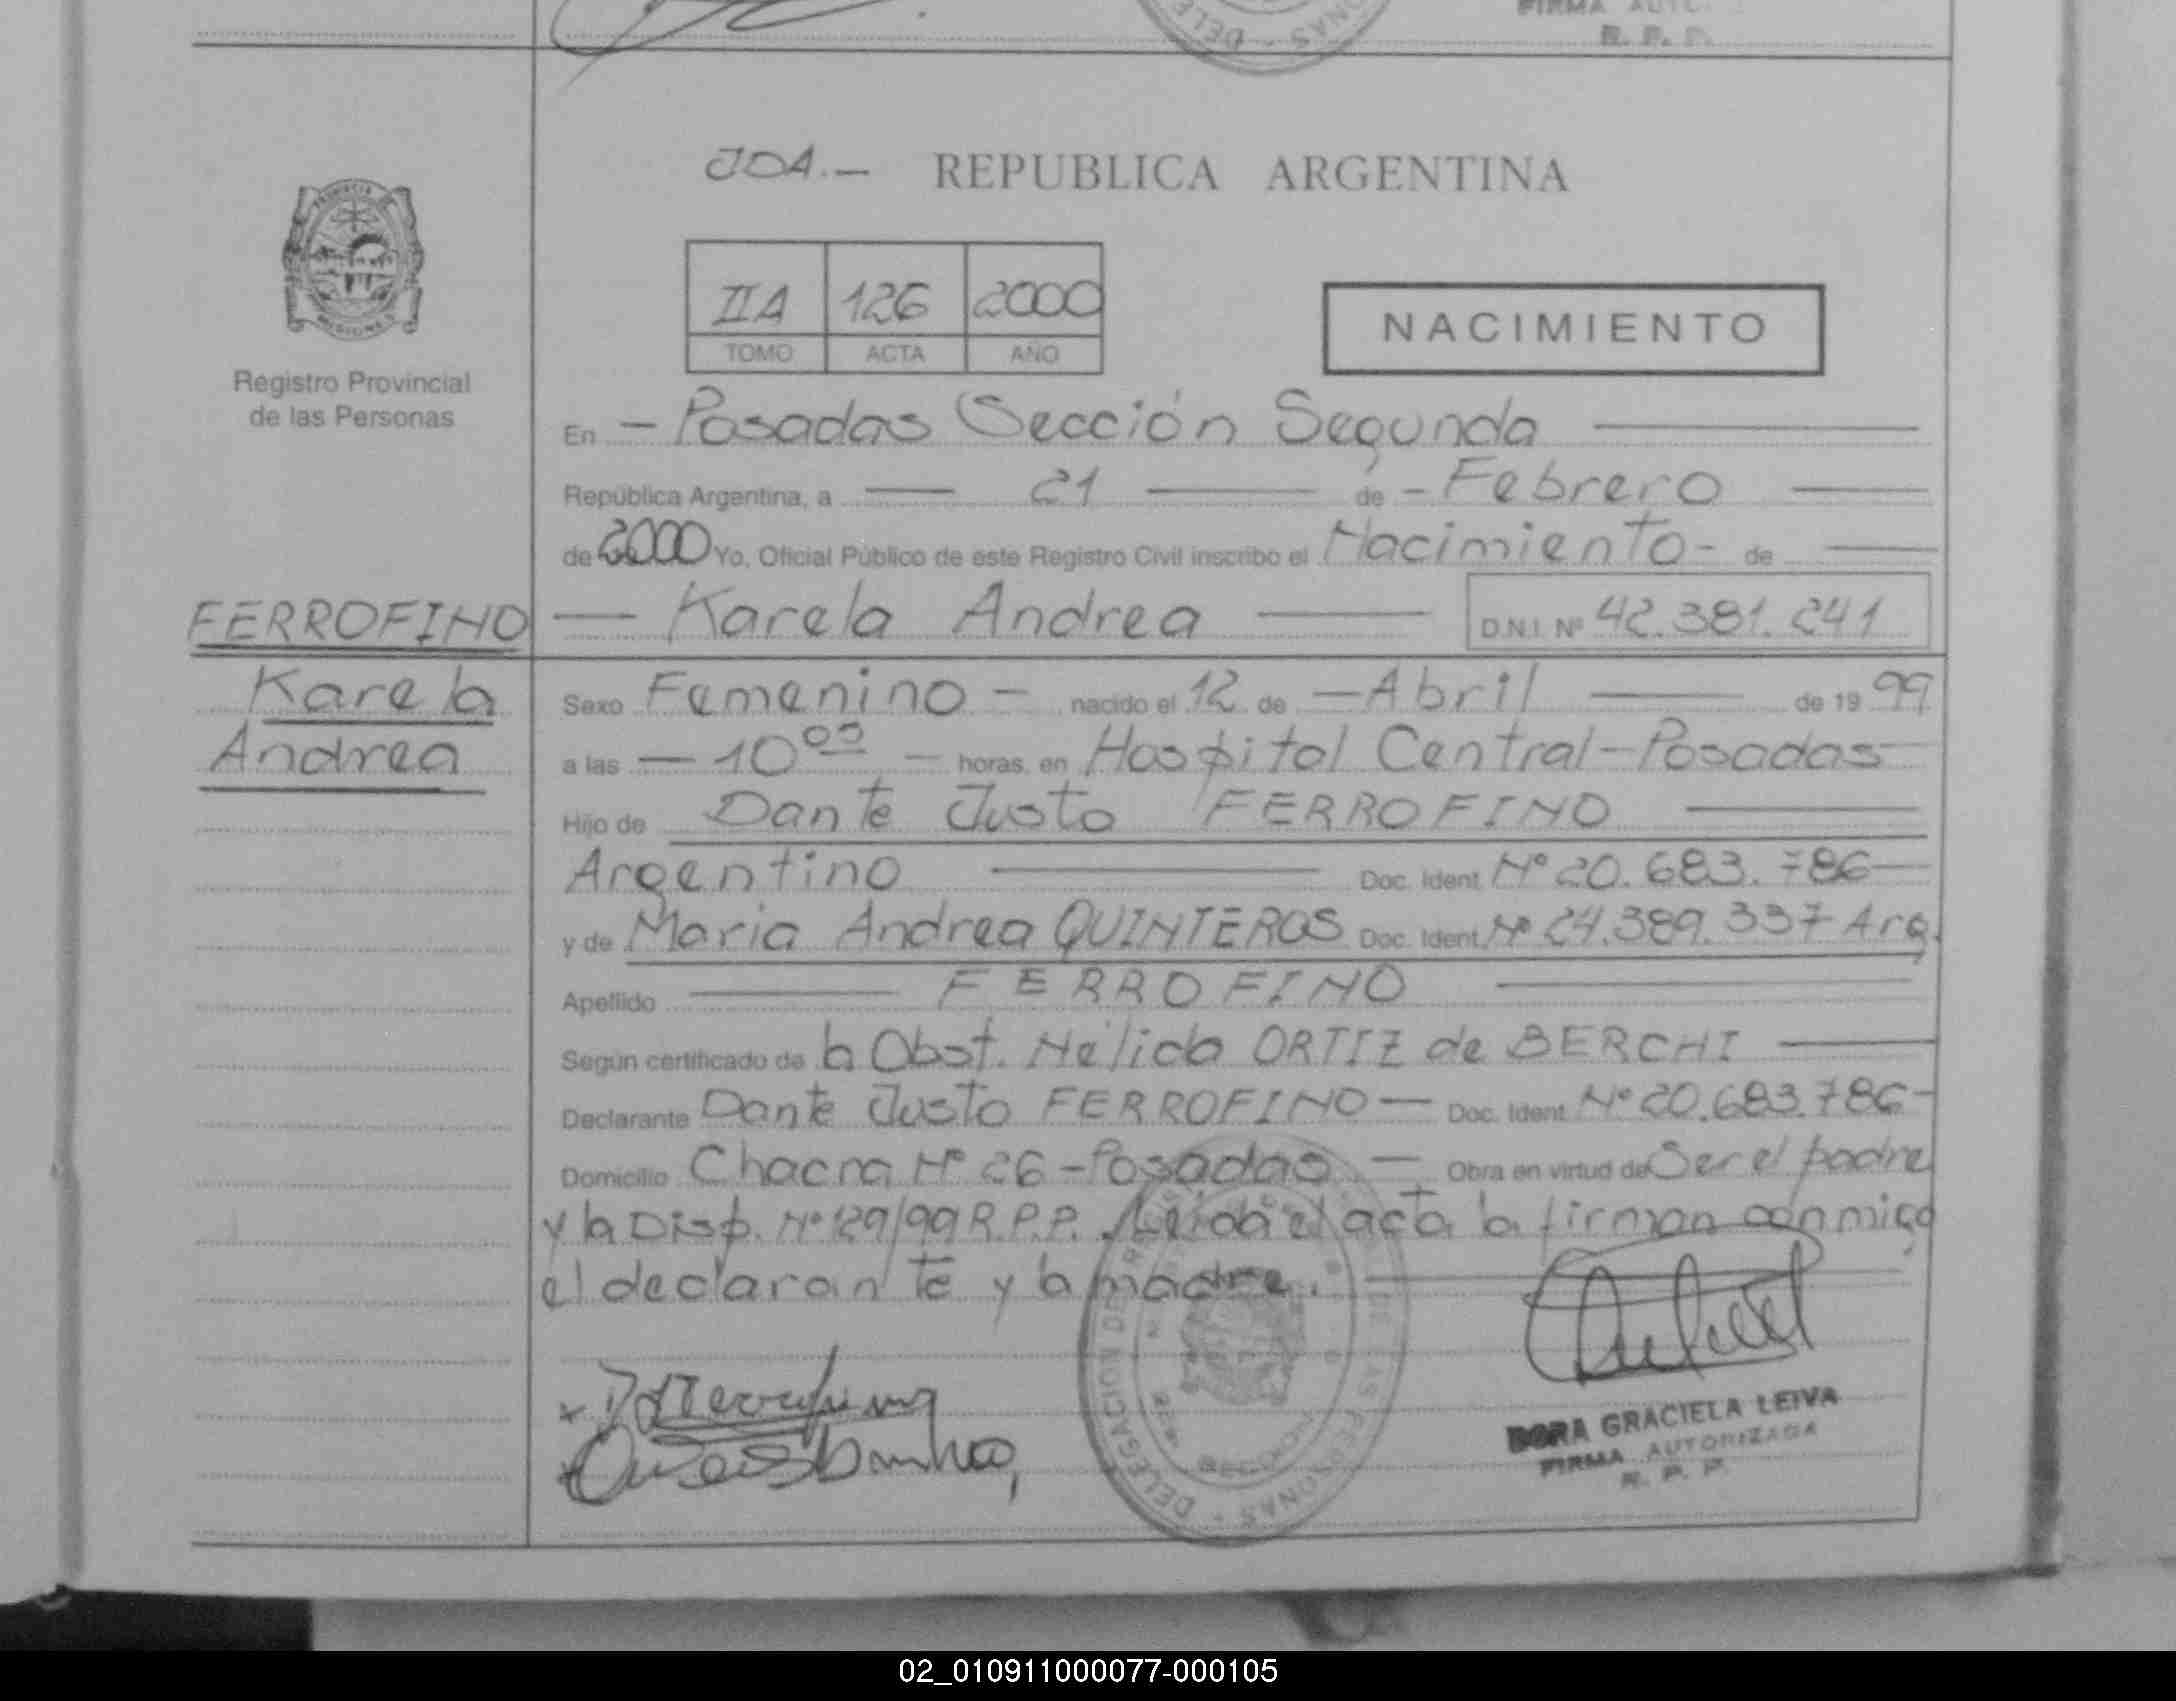 FIRMA AUTO.
R. P. P.
JDA.- REPUBLICA ARGENTINA
IIA 126 2000
TOMO ACTA AÑO
NACIMIENTO
Registro Provincial
de las Personas
En - Posadas Sección Segunda
República Argentina, a 21 de - Febrero
de 2000 Yo, Oficial Público de este Registro Civil inscribo el Nacimiento - de
FERROFINO
Karela Andrea D.N.I. Nº 42.381.241
Karela
Andrea
Sexo Femenino - nacido el 12 de - Abril de 19 99
a las - 10 00 - horas, en Hospital Central - Posadas
Hijo de Dante Justo FERROFINO
Argentino Doc. Ident. Nº 20.683.786
y de Maria Andrea QUINTEROS Doc. Ident. Nº 24.389.337 Arg.
Apellido FERROFINO
Según certificado de la Obst. Nélida ORTIZ de BERCHI
Declarante Dante Justo FERROFINO - Doc. Ident. Nº 20.683.786 -
Domicilio Chacra Nº 26 - Posadas - Obra en virtud de Ser el padre
y la Disp. Nº 129/99 R.P.P. Leida el acta la firman conmigo
el declarante y la madre.
DELEGACION DE REGISTRO DE LAS PERSONAS
DORA GRACIELA LEIVA
FIRMA AUTORIZADA
R. P. P.
02_010911000077-000105